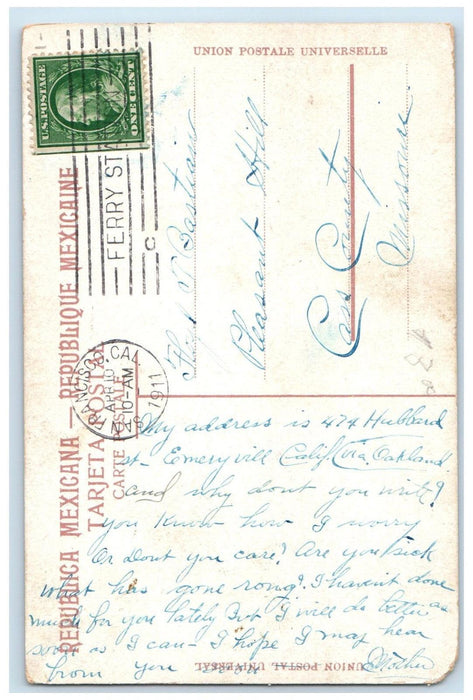 UNION POSTALE UNIVERSELLE
U.S. POSTAGE
ONE CENT
FERRY STA
C
SAN FRANCISCO, CAL.
APR 10
10-AM
1911
REPUBLICA MEXICANA — REPUBLIQUE MEXICAINE
TARJETA POSTAL
CARTE POSTALE
Pleasant Hill
Cass County
Missouri
My address is 474 Hubbard
st- Emeryvill Calif Via. Oakland
and why dont you write?
you Know how I worry
Or dont you care? Are you sick
what has gone rong? I havent done
much for you lately But I will do better as
soon is I can- I hope I may hear
from you soon Mother
UNION POSTAL UNIVERSAL